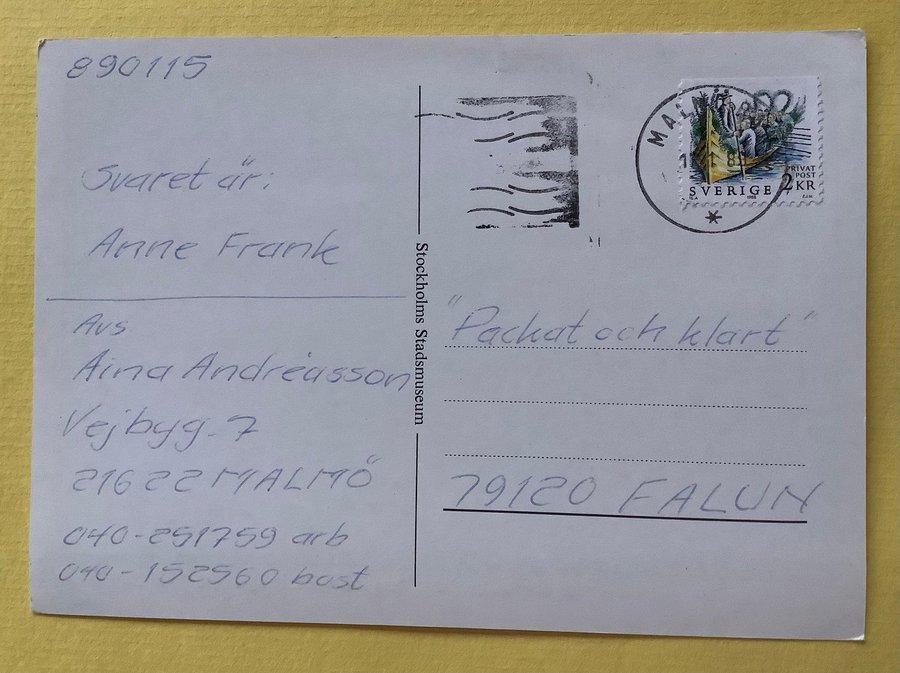 890115
Svaret är:
Anne Frank
Avs
Aina Andréasson
Vejbyg. 7
21622 MALMÖ
040-251759 arb
040-152560 bost
Stockholms Stadsmuseum
MALMÖ
PRIVAT
POST
SVERIGE 2 KR
1988
"Packat och klart"
79120 FALUN